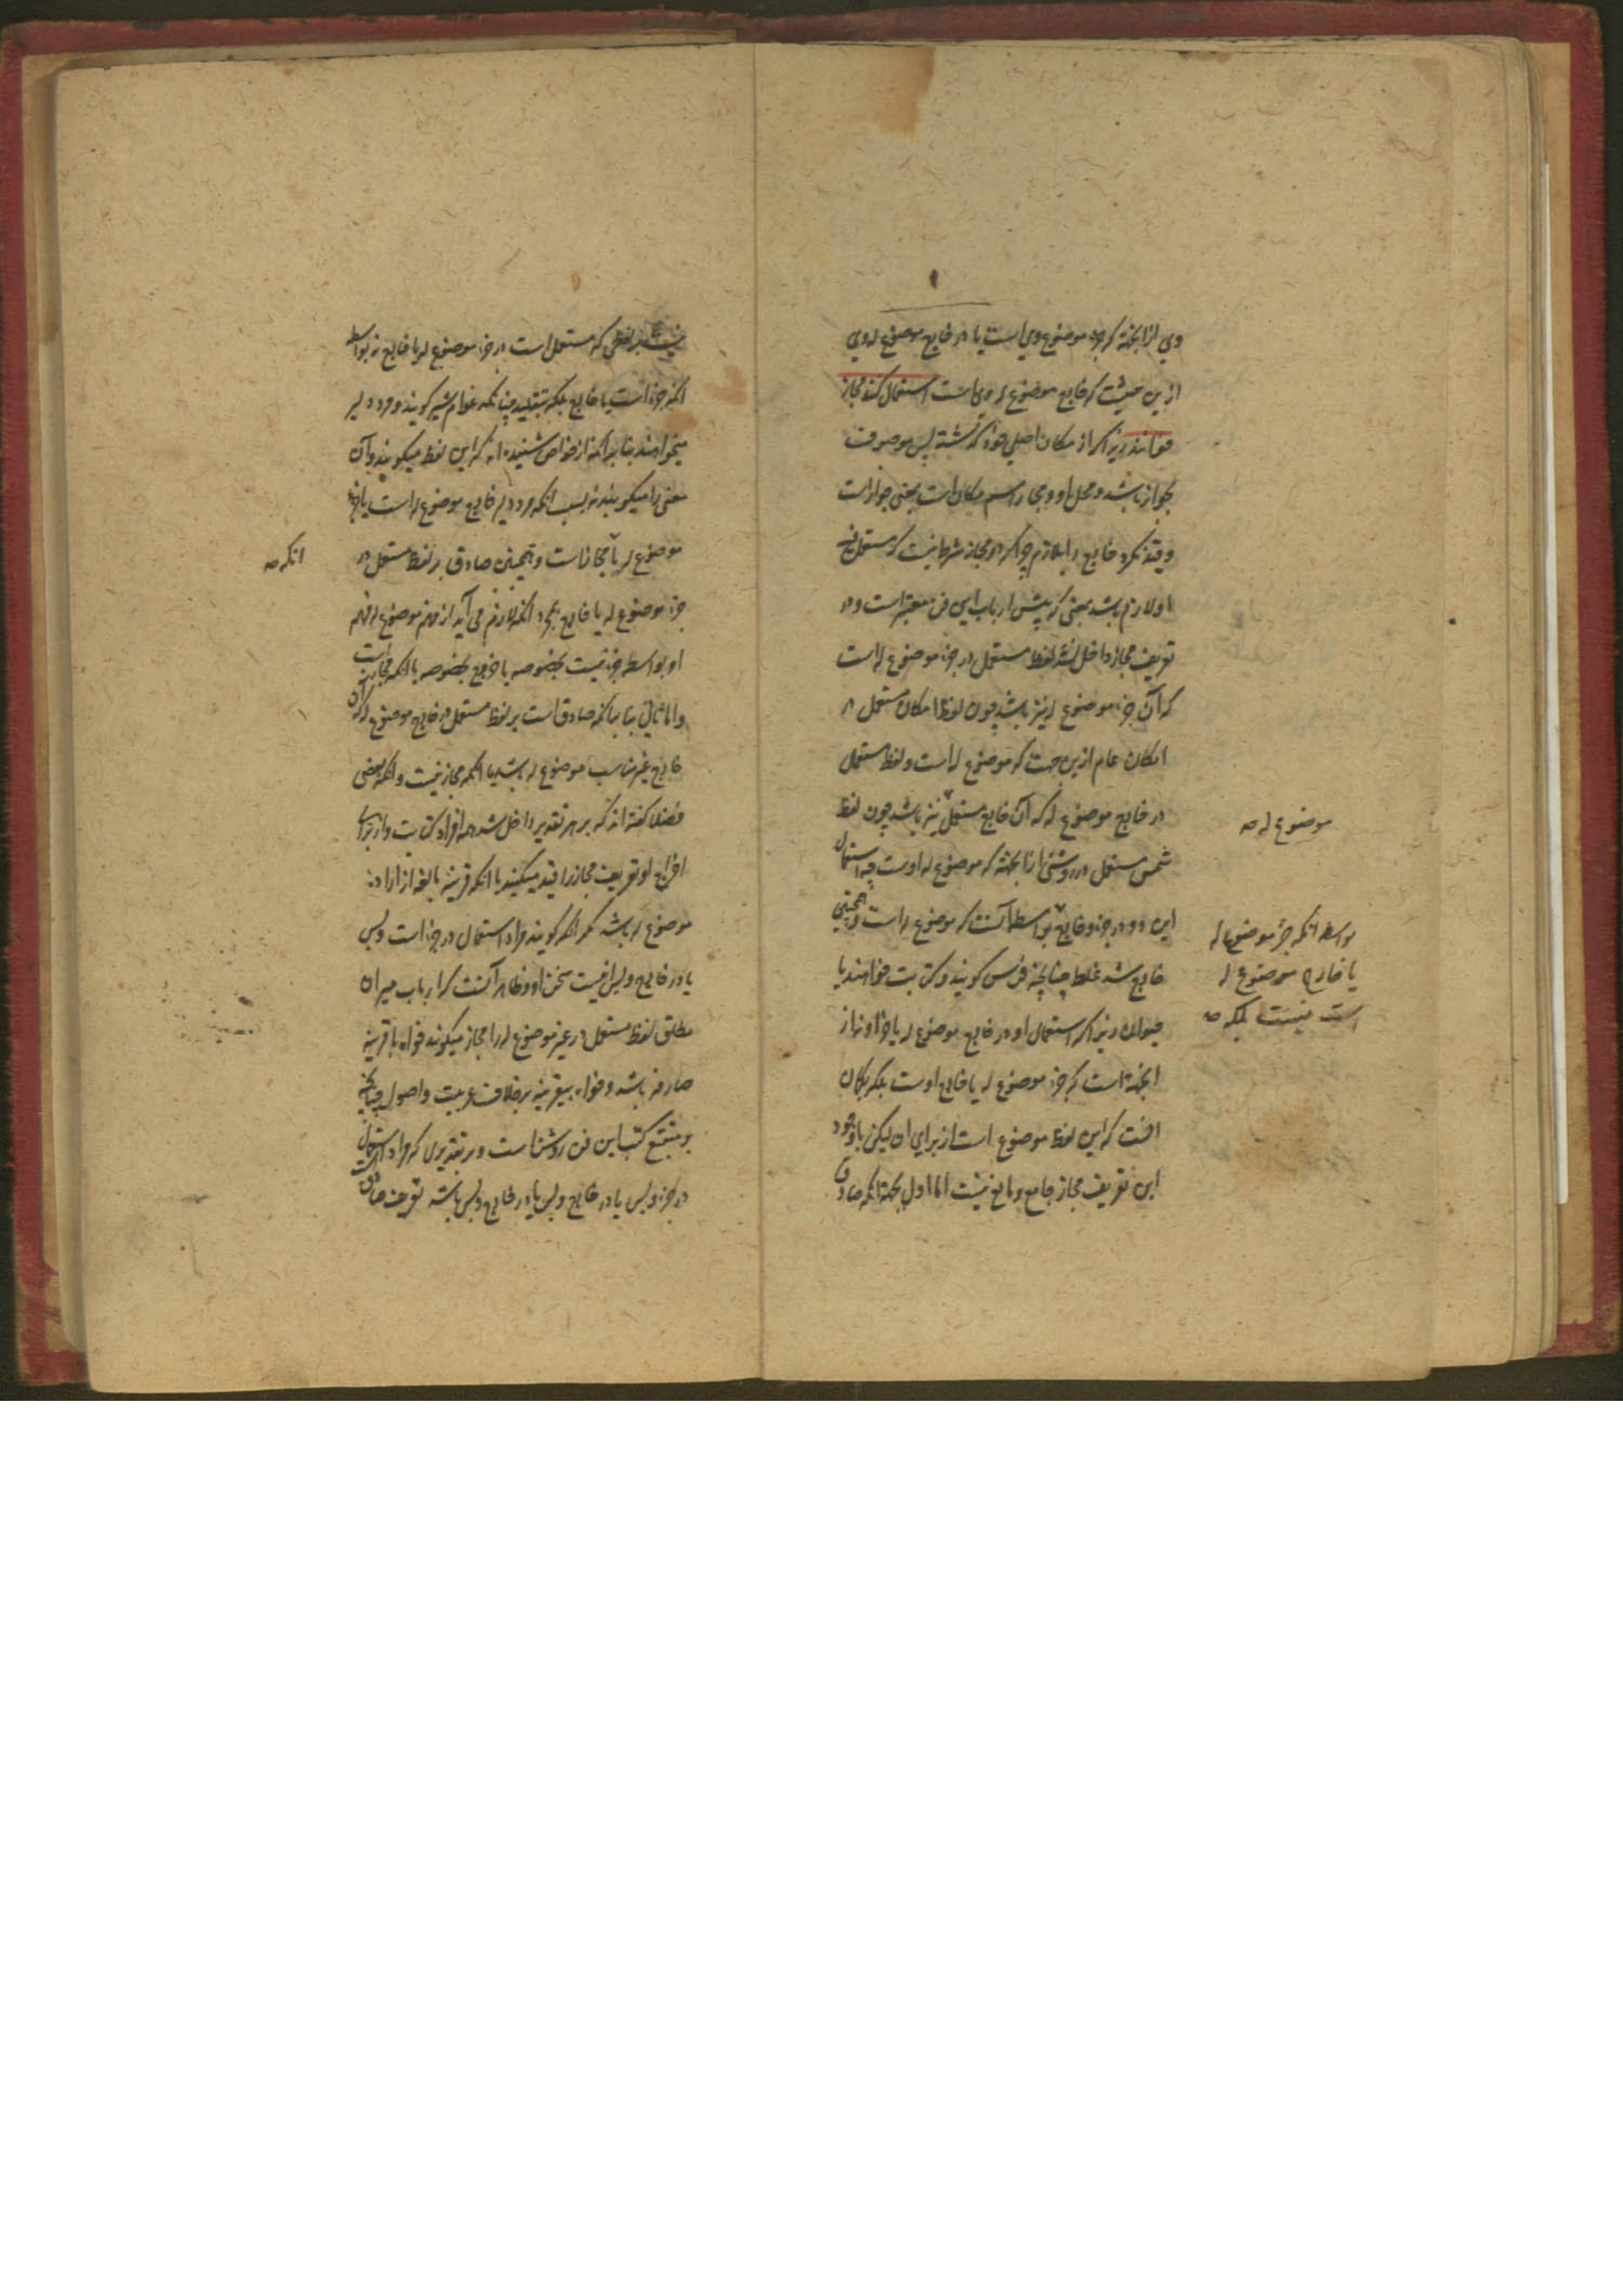 وی ازانجهة که جزء موضوع وی است یا در خارج موضوع له وی
ازین حیثیت که خارج موضوع له وی است استعمال کنند مجاز
خوانند زیرا که از مکان اصلی خود گذشته پس موصوف
بجواز باشد و محل او و مجاز اسم مکان است یعنی جواز است
و قید نکرد خارج را بلازم چرا که در مجاز شرط نیست که مستعمل فیه
او لازم باشد بمعنی که پیش ارباب این فن معتبر است و در
تعریف مجاز داخل نشد لفظ مستعمل در جزء موضوع له است
که آن جزء موضوع له نیز باشد چون لفظ امکان مستعمل در
امکان عام ازین جهت که موضوع له است و لفظ مستعمل
در خارج موضوع له که آن خارج مستعمل نیز باشد چون لفظ
موضوع له صه
شمس مستعمل در روشنی ازانجهة که موضوع له اوست چه استعمال
این دو در جزء و خارج بواسطه آنست که موضوع له است و همچنین
بواسطه انکه جزء موضوع له
یا خارج موضوع له
است نیست بلکه صه
خارج شد غلط چنانچه فرس گویند و کتابت خواهند یا
حیوان زیرا که استعمال او در خارج موضوع له یا جزء او نه از
انجهة است که جزء موضوع له یا خارج اوست بلکه بگمان
انست که این لفظ موضوع است از برای ان لیکن باوجود
این تعریف مجاز جامع و مانع نیست اما اول بجهة انکه صادق
نیست بر لفظی که مستعمل است در جزء موضوع له یا خارج نه بواسطه
انکه جزء است یا خارج بلکه بتقلید چنانکه عوام شیر گویند و مرد دلیر
میخواهند بنابر انکه از خواص شنیده اند که این لفظ میگویند و آن
معنی را میگویند نه بسبب انکه مرد دلیر خارج موضوع له است یا جزء
موضوع له با مجاز است و همچنین صادق بر لفظ مستعمل در
انکه صه
جزء موضوع له یا خارج بمجرد انکه لازم می آید از فهم موضوع له فهم
او بواسطه جزئیت بخصوصه یا خروج بخصوصه با انکه مجاز است
و اما ثانی بنا بر انکه صادق است بر لفظ مستعمل در خارج موضوع له که آن
خارج غیر مناسب موضوع له باشد با انکه مجاز نیست و انکه بعضی
فضلا گفته اند که بر هر تقدیر داخل شد همه افراد کنایت و از برای
اخراج او تعریف مجاز را قید میکنند با انکه قرینه مانعه از اراده
موضوع له باشد مگر انکه گویند مراد استعمال در جزء است و بس
یا در خارج و بس نیست سخن او و ظاهر آنست که ارباب میزان
مطلق لفظ مستعمل در غیر موضوع له را مجاز میگویند خواه با قرینه
صارفه باشد و خواه بیقرینه بر خلاف عربیت و اصول چنانکه
بر متتبع کتب این فن روشن است و بر تقدیری که مراد استعمال
در جزء و بس یا در خارج و بس باشد تعریف صادق است